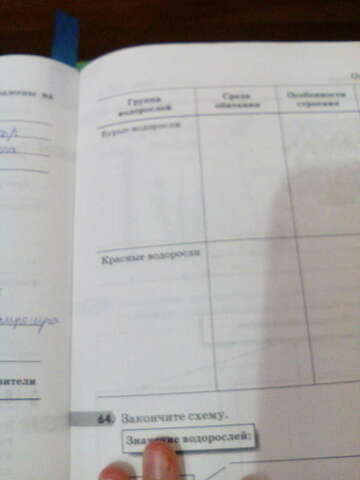 на
Группа
водорослей
Среда
обитания
Особенности
строения
Бурые водоросли
Красные водоросли
64. Закончите схему.
Значение водорослей: